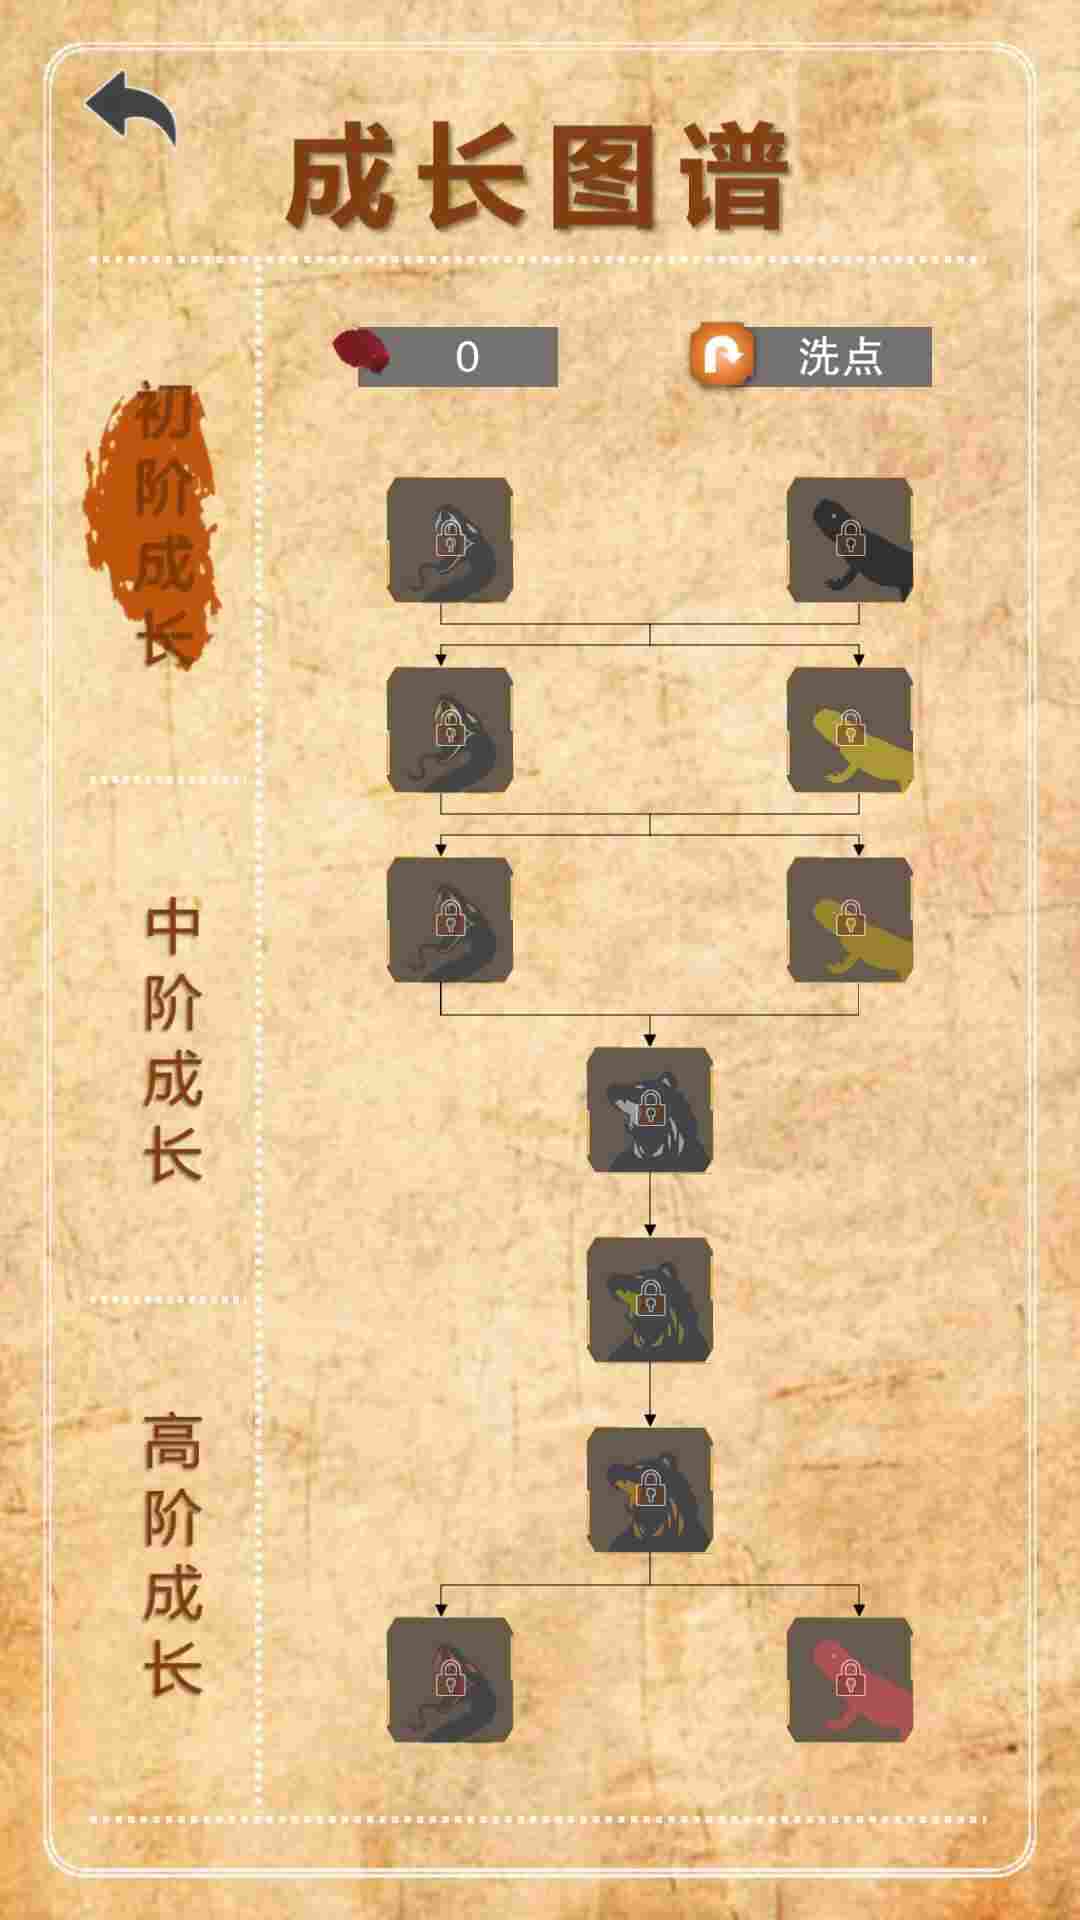 成长图谱
0
洗点
初阶成长
中阶成长
高阶成长